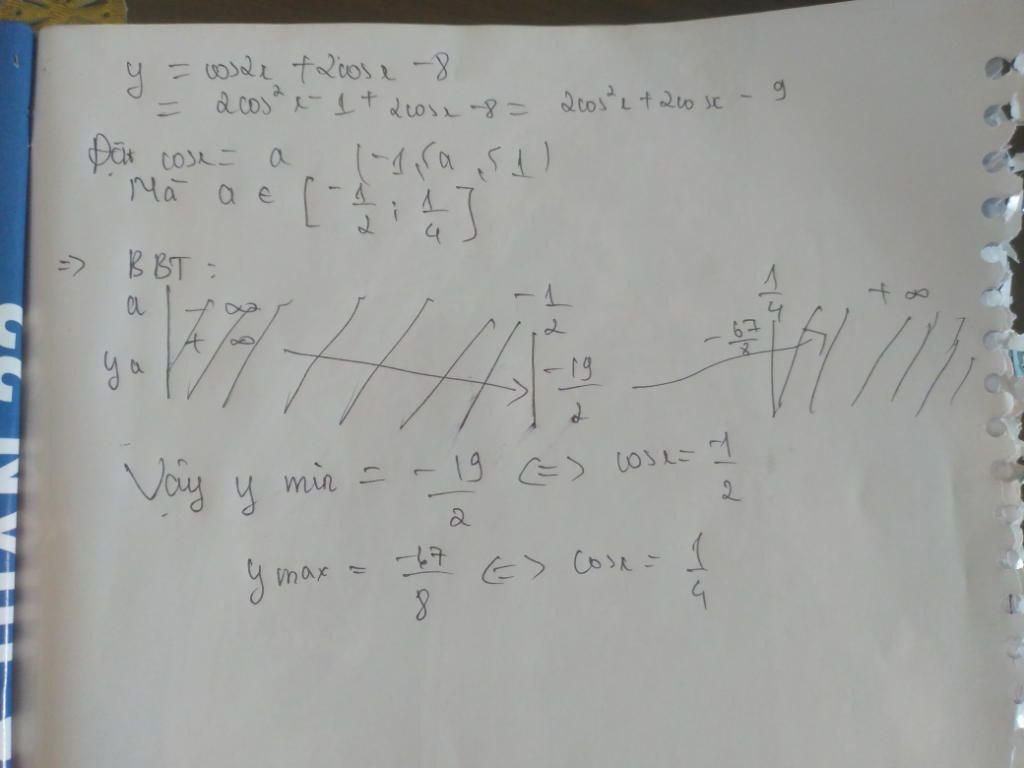 y = cos2x + 2cosx - 8
= 2cos²x - 1 + 2cosx - 8 = 2cos²x + 2cosx - 9
Đặt cosx = a (-1 ≤ a ≤ 1)
Mà a ∈ [-1/2; 1/4]
=> BBT:
a -∞ -1/2 1/4 +∞
ya +∞ -19/2 -67/8
Vậy y min = -19/2 <=> cosx = -1/2
y max = -67/8 <=> cosx = 1/4